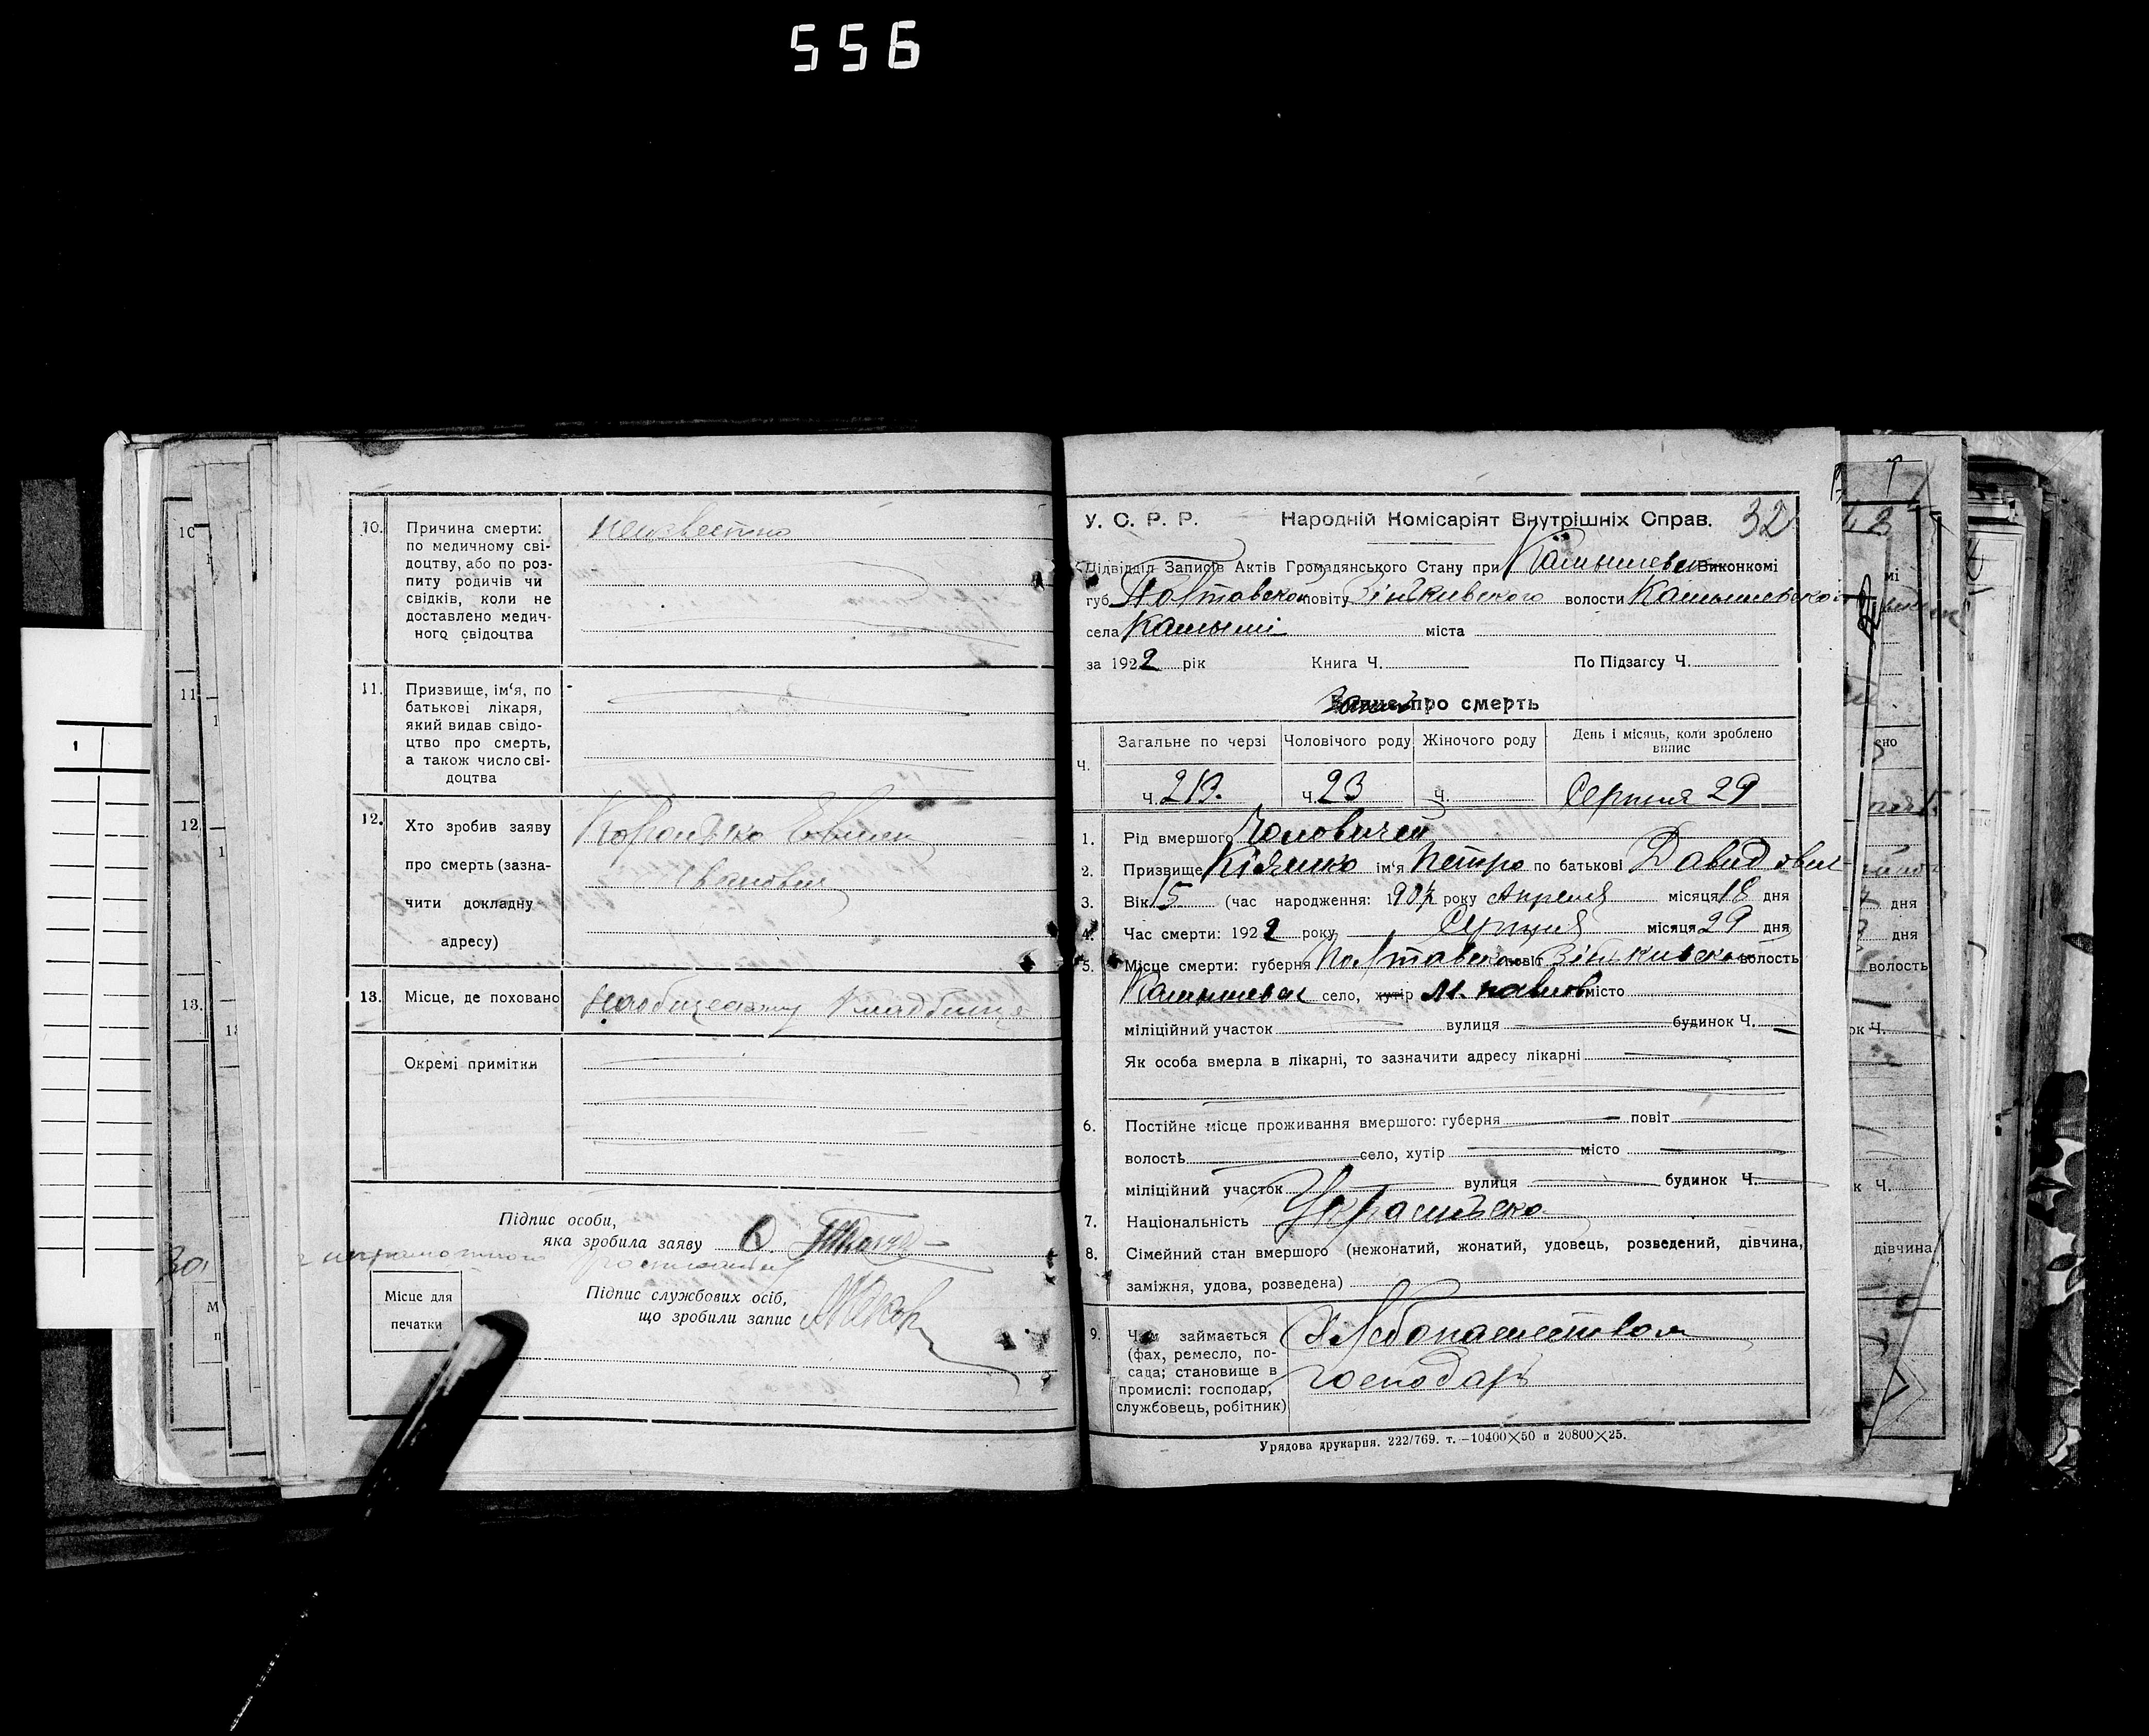 556
10. Причина смерти: неизвестно
по медичному сві-
доцтву, або по роз-
питу родичів чи
свідків, коли не
доставлено медич-
ного свідоцтва
11. Призвище, ім‘я, по
батькові лікаря,
який видав свідо-
цтво про смерть,
а також число сві-
доцтва
12. Хто зробив заяву
про смерть (зазна-
чити докладну
адресу)
13. Місце, де поховано
Окремі примітки
Підпис особи,
яка зробила заяву
Місце для
печатки
Підпис службових осіб,
що зробили запис
У. С. Р. Р. Народній Комісаріят Внутрішніх Справ. 32
Підвідділ Записів Актів Громадянського Стану при Виконкомі
губ. Полтавской повіту Зіньківского волости
села Камыші міста
за 1922 рік Книга Ч. По Підзагсу Ч.
про смерть
Ч. Загальне по черзі Чоловічого роду Жіночого роду День і місяць, коли зроблено
випис
Ч. Ч. 23 Ч. Серпня 29
1. Рід вмершого Чоловичей
2. Призвище ім‘я Петро по батькові Давидович
3. Вік 15 (час народження: 1907 року Апреля місяця 18 дня
4. Час смерти: 1922 року Серпня місяця 29 дня
5. Місце смерти: губерня Полтавська повіт волость
село, хутір місто
міліційний участок вулиця будинок Ч.
Як особа вмерла в лікарні, то зазначити адресу лікарні
6. Постійне місце проживання вмершого: губерня повіт
волость село, хутір місто
міліційний участок вулиця будинок Ч.
7. Національність
8. Сімейний стан вмершого (нежонатий, жонатий, удовець, розведений, дівчина,
заміжня, удова, розведена)
9. Чим займається Хлебопашеством
(фах, ремесло, по-
сада; становище в господарь
промислі: господар,
службовець, робітник)
Урядова друкарня. 222/769. т. —10400×50 и 20800×25.